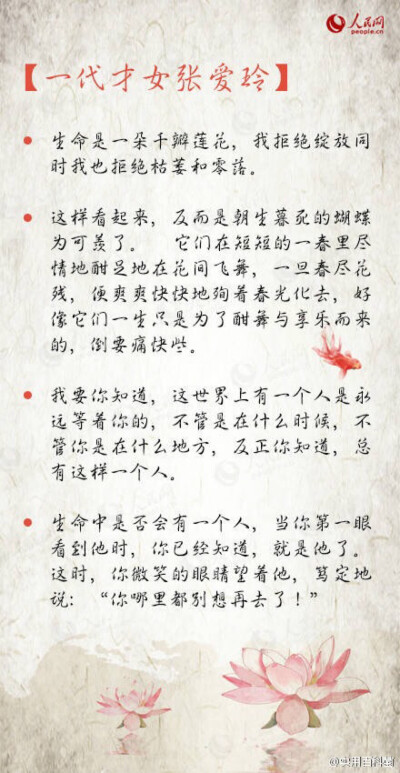 人民网
people.cn
【一代才女张爱玲】
生命是一朵千瓣莲花，我拒绝绽放同
时我也拒绝枯萎和零落。
这样看起来，反而是朝生暮死的蝴蝶
为可羡了。 它们在短短的一春里尽
情地酣足地在花间飞舞，一旦春尽花
残，便爽爽快快地殉着春光化去，好
像它们一生只是为了酣舞与享乐而来
的，倒要痛快些。
我要你知道，这世界上有一个人是永
远等着你的，不管是在什么时候，不
管你是在什么地方，反正你知道，总
有这样一个人。
生命中是否会有一个人，当你第一眼
看到他时，你已经知道，就是他了。
这时，你微笑的眼睛望着他，笃定地
说：“你哪里都别想再去了！”